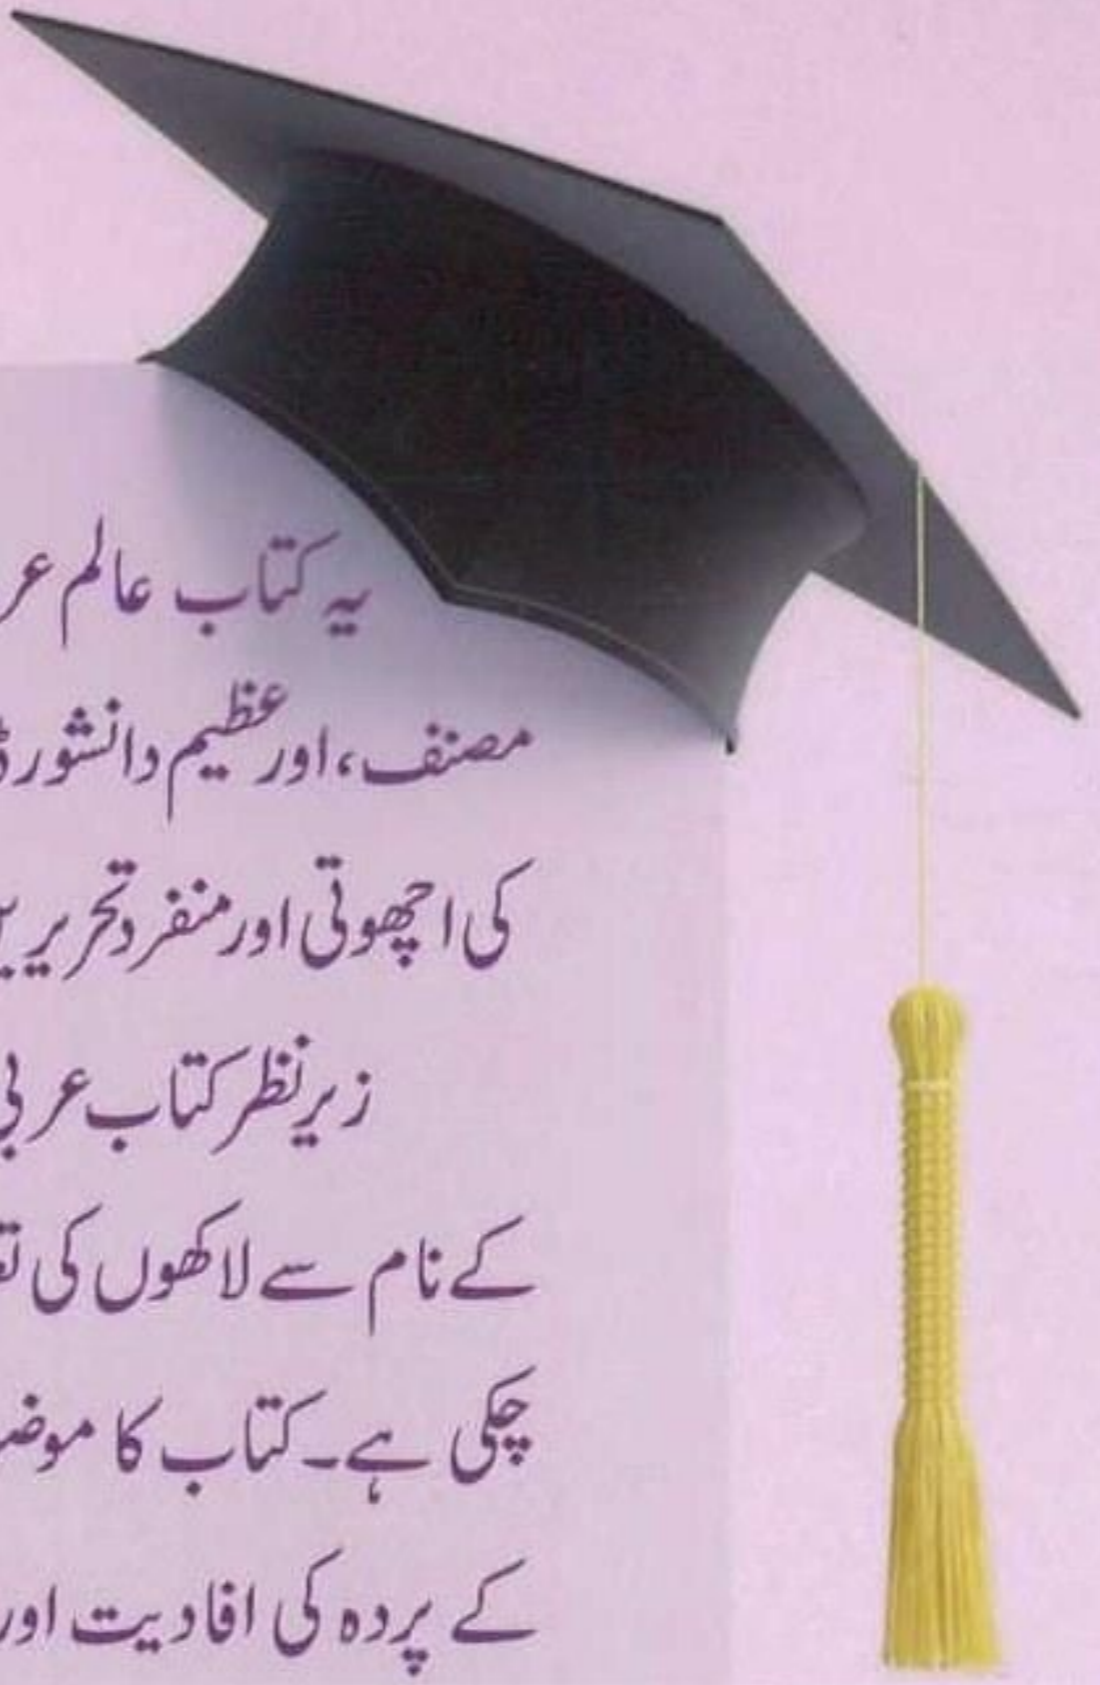 یہ کتاب عالم عر
مصنف، اور عظیم دانشور
کی اچھوتی اور منفرد تحریر
زیر نظر کتاب عربی
کے نام سے لاکھوں کی
چکی ہے۔ کتاب کا موضـ
کے پردہ کی افادیت اور